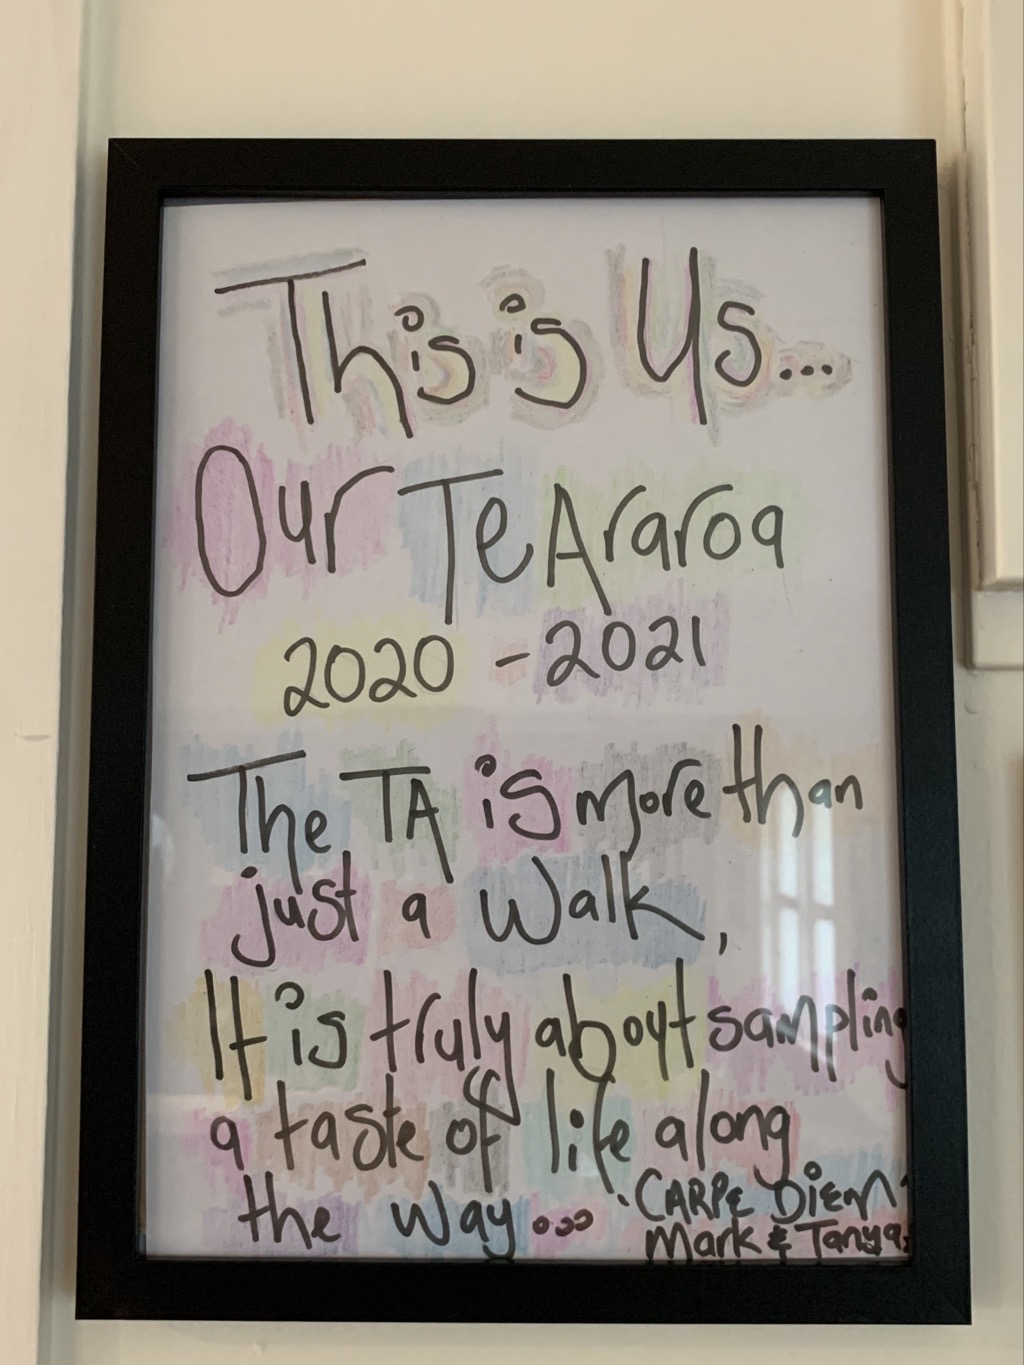 This is Us...
Our Te Araroa
2020 - 2021
The TA is more than
just a Walk,
It is truly about sampling
a taste of life along
the way...
'CARPE DiEM'
Mark & Tanya.